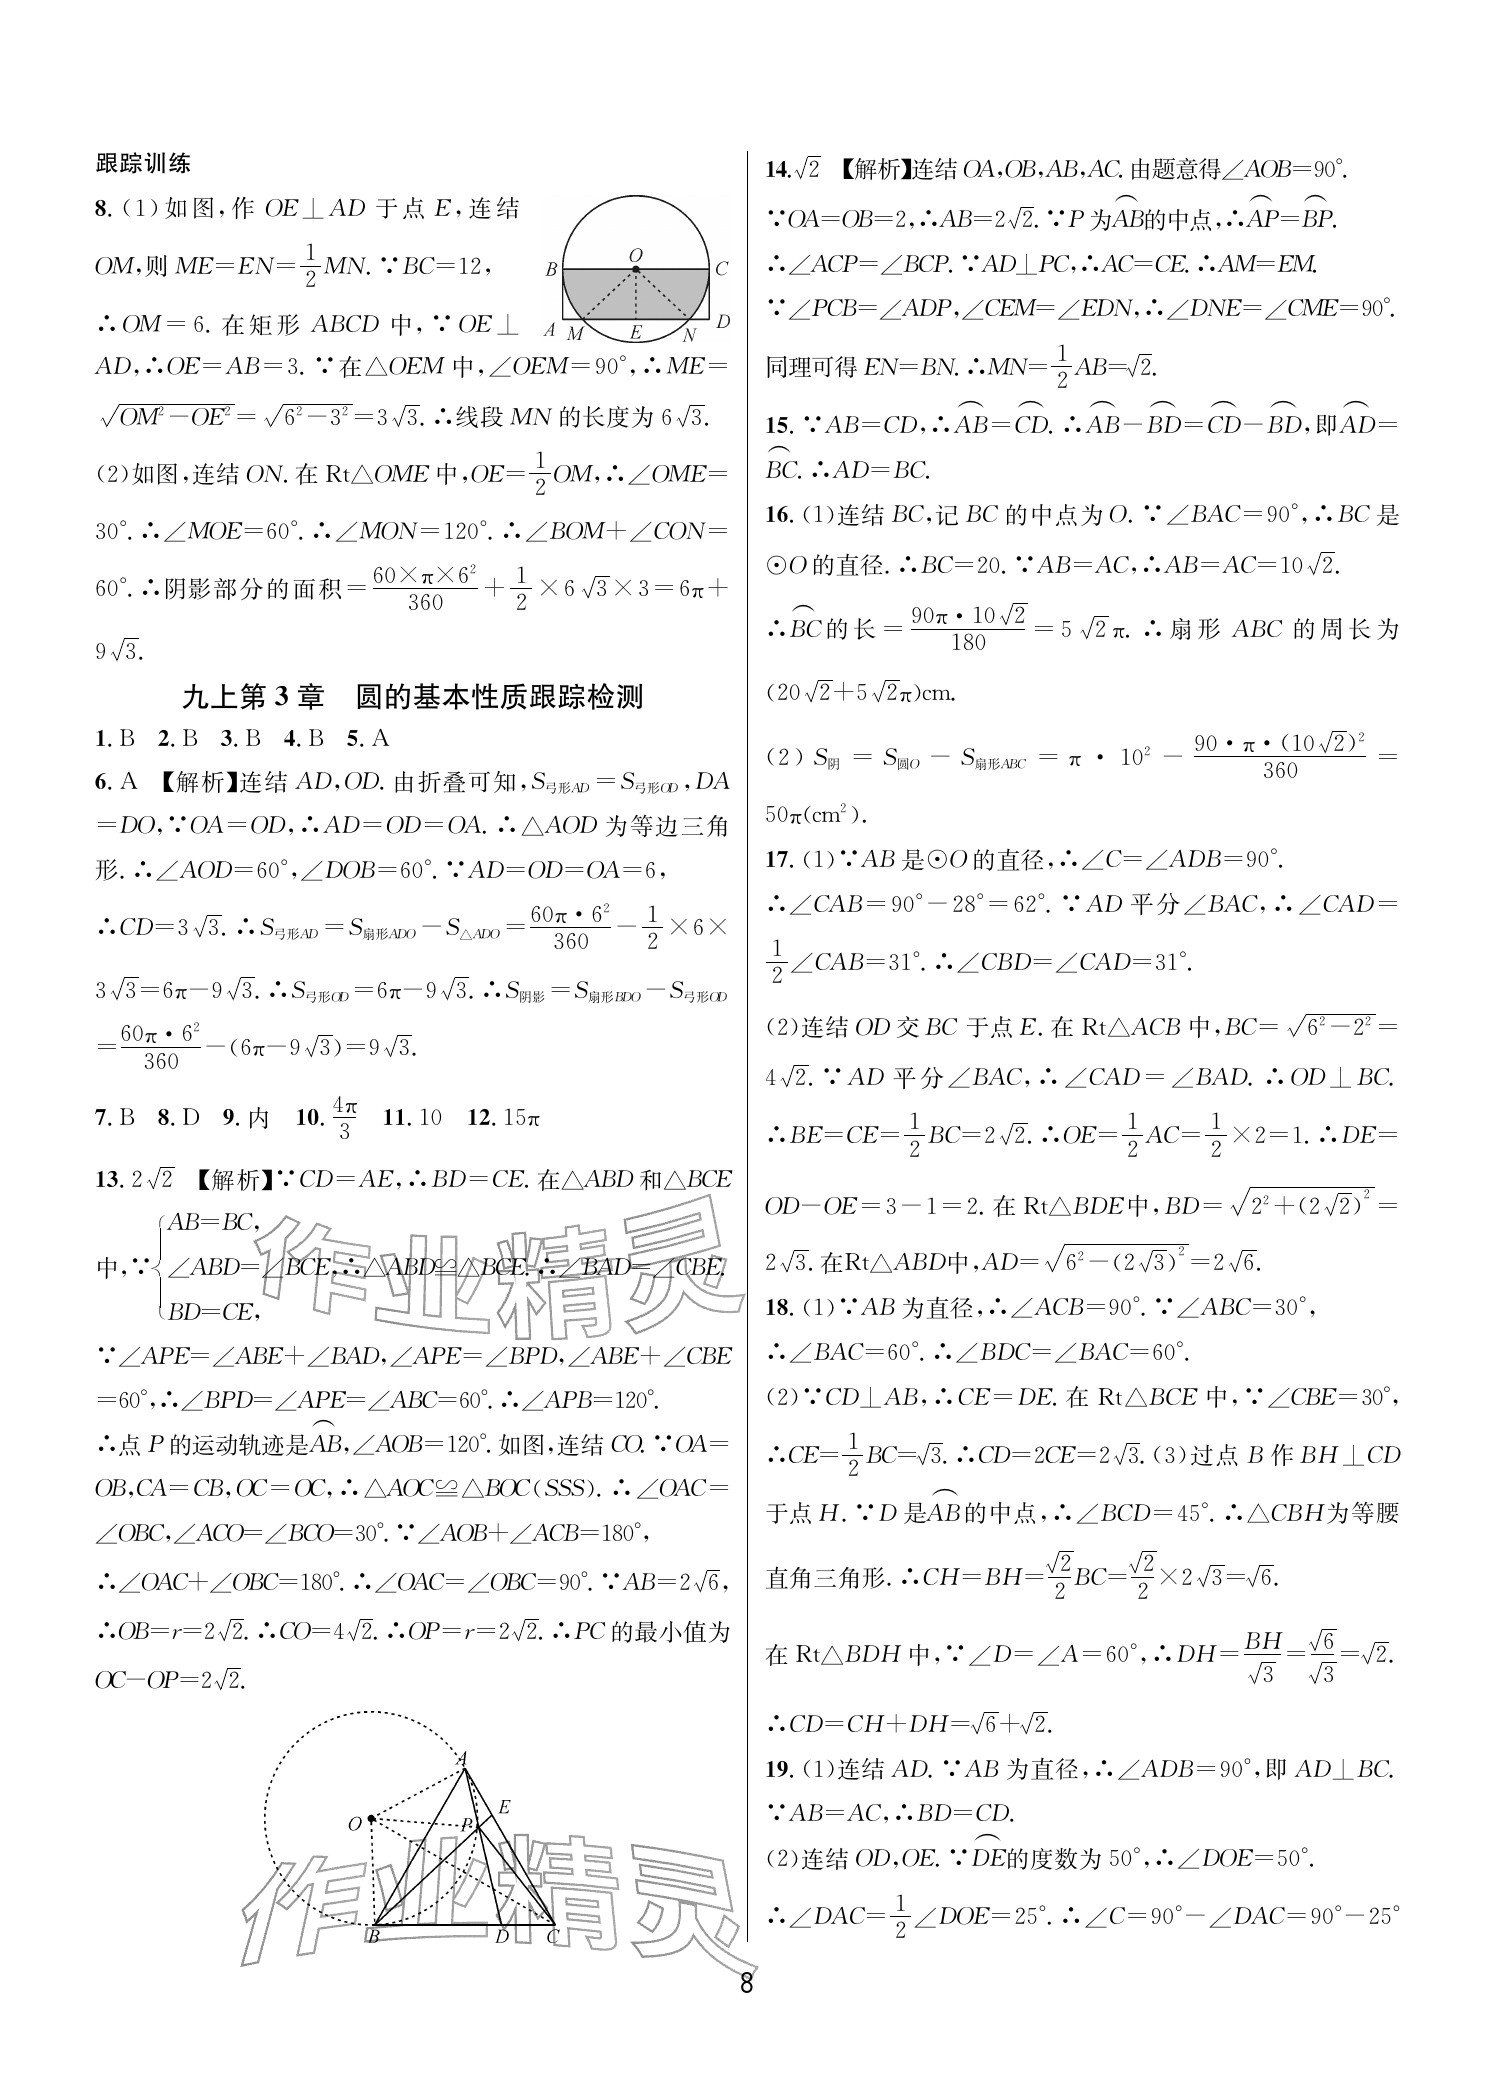 跟踪训练
8. (1)如图,作 OE⊥AD 于点 E,连结
OM,则 ME=EN=1/2MN. ∵BC=12,
∴OM=6. 在矩形 ABCD 中,∵OE⊥
AD,∴OE=AB=3. ∵在△OEM 中,∠OEM=90°,∴ME=
√(OM²-OE²)=√(6²-3²)=3√3. ∴线段 MN 的长度为 6√3.
(2)如图,连结 ON. 在 Rt△OME 中,OE=1/2OM,∴∠OME=
30°. ∴∠MOE=60°. ∴∠MON=120°. ∴∠BOM+∠CON=
60°. ∴阴影部分的面积=(60×π×6²)/360+1/2×6√3×3=6π+
9√3.
B O C
A M E N D
九上第 3 章 圆的基本性质跟踪检测
1. B 2. B 3. B 4. B 5. A
6. A 【解析】连结 AD,OD. 由折叠可知,S弓形AD=S弓形OD,DA
=DO,∵OA=OD,∴AD=OD=OA. ∴△AOD 为等边三角
形. ∴∠AOD=60°,∠DOB=60°. ∵AD=OD=OA=6,
∴CD=3√3. ∴S弓形AD=S扇形ADO-S△ADO=(60π·6²)/360-1/2×6×
3√3=6π-9√3. ∴S弓形OD=6π-9√3. ∴S阴影=S扇形BDO-S弓形OD
=(60π·6²)/360-(6π-9√3)=9√3.
7. B 8. D 9. 内 10. 4π/3 11. 10 12. 15π
13. 2√2 【解析】∵CD=AE,∴BD=CE. 在△ABD 和△BCE
AB=BC,
中,∵{∠ABD=∠BCE,∴△ABD≌△BCE. ∴∠BAD=∠CBE.
BD=CE,
∵∠APE=∠ABE+∠BAD,∠APE=∠BPD,∠ABE+∠CBE
=60°,∴∠BPD=∠APE=∠ABC=60°. ∴∠APB=120°.
∴点 P 的运动轨迹是⌒AB,∠AOB=120°. 如图,连结 CO. ∵OA=
OB,CA=CB,OC=OC,∴△AOC≌△BOC(SSS). ∴∠OAC=
∠OBC,∠ACO=∠BCO=30°. ∵∠AOB+∠ACB=180°,
∴∠OAC+∠OBC=180°. ∴∠OAC=∠OBC=90°. ∵AB=2√6,
∴OB=r=2√2. ∴CO=4√2. ∴OP=r=2√2. ∴PC 的最小值为
OC-OP=2√2.
A
E
O P
B D C
作业精灵
作业精灵
14. √2 【解析】连结 OA,OB,AB,AC. 由题意得∠AOB=90°.
∵OA=OB=2,∴AB=2√2. ∵P 为⌒AB的中点,∴⌒AP=⌒BP.
∴∠ACP=∠BCP. ∵AD⊥PC,∴AC=CE. ∴AM=EM.
∵∠PCB=∠ADP,∠CEM=∠EDN,∴∠DNE=∠CME=90°.
同理可得 EN=BN. ∴MN=1/2AB=√2.
15. ∵AB=CD,∴⌒AB=⌒CD. ∴⌒AB-⌒BD=⌒CD-⌒BD,即⌒AD=
⌒BC. ∴AD=BC.
16. (1)连结 BC,记 BC 的中点为 O. ∵∠BAC=90°,∴BC 是
⊙O 的直径. ∴BC=20. ∵AB=AC,∴AB=AC=10√2.
∴⌒BC的长=(90π·10√2)/180=5√2π. ∴扇形 ABC 的周长为
(20√2+5√2π)cm.
(2)S阴=S圆O-S扇形ABC=π·10²-(90·π·(10√2)²)/360=
50π(cm²).
17. (1)∵AB 是⊙O 的直径,∴∠C=∠ADB=90°.
∴∠CAB=90°-28°=62°. ∵AD 平分∠BAC,∴∠CAD=
1/2∠CAB=31°. ∴∠CBD=∠CAD=31°.
(2)连结 OD 交 BC 于点 E. 在 Rt△ACB 中,BC=√(6²-2²)=
4√2. ∵AD 平分∠BAC,∴∠CAD=∠BAD. ∴OD⊥BC.
∴BE=CE=1/2BC=2√2. ∴OE=1/2AC=1/2×2=1. ∴DE=
OD-OE=3-1=2. 在 Rt△BDE中,BD=√(2²+(2√2)²)=
2√3. 在Rt△ABD中,AD=√(6²-(2√3)²)=2√6.
18. (1)∵AB 为直径,∴∠ACB=90°. ∵∠ABC=30°,
∴∠BAC=60°. ∴∠BDC=∠BAC=60°.
(2)∵CD⊥AB,∴CE=DE. 在 Rt△BCE 中,∵∠CBE=30°,
∴CE=1/2BC=√3. ∴CD=2CE=2√3. (3)过点 B 作 BH⊥CD
于点 H. ∵D 是⌒AB的中点,∴∠BCD=45°. ∴△CBH为等腰
直角三角形. ∴CH=BH=√2/2BC=√2/2×2√3=√6.
在 Rt△BDH 中,∵∠D=∠A=60°,∴DH=BH/√3=√6/√3=√2.
∴CD=CH+DH=√6+√2.
19. (1)连结 AD. ∵AB 为直径,∴∠ADB=90°,即 AD⊥BC.
∵AB=AC,∴BD=CD.
(2)连结 OD,OE. ∵⌒DE的度数为 50°,∴∠DOE=50°.
∴∠DAC=1/2∠DOE=25°. ∴∠C=90°-∠DAC=90°-25°
8